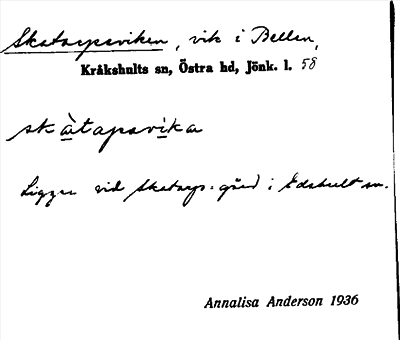 Skatarpsviken, vik i Bellen,
Kråkshults sn, Östra hd, Jönk. l. 58
skàtapsvika
Ligger vid Skatarps gård i Edshult sn.
Annalisa Anderson 1936